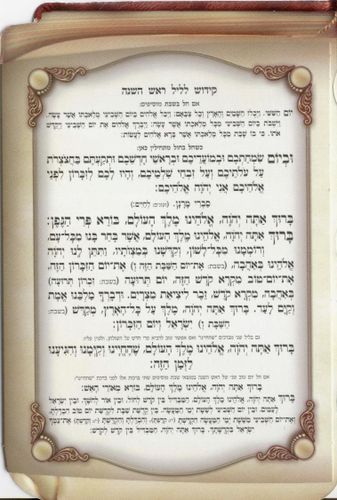 קידוש לליל ראש השנה
אם חל בשבת מוסיפים:
יום הששי. ויכלו השמים והארץ וכל צבאם: ויכל אלהים ביום השביעי מלאכתו אשר עשה.
וישבת ביום השביעי מכל מלאכתו אשר עשה: ויברך אלהים את יום השביעי ויקדש
אתו. כי בו שבת מכל מלאכתו אשר ברא אלהים לעשות:
כשחל בחול מתחילין כאן:
וביום שמחתכם ובמועדיכם ובראשי חדשכם ותקעתם בחצצרת
על עלתיכם ועל זבחי שלמיכם. והיו לכם לזכרון לפני
אלהיכם אני יהוה אלהיכם:
סברי מרנן. (ועונים) לחיים:)
ברוך אתה יהוה, אלהינו מלך העולם, בורא פרי הגפן:
ברוך אתה יהוה, אלהינו מלך העולם, אשר בחר בנו מכל-עם,
ורוממנו מכל-לשון, וקדשנו במצותיו. ותתן לנו יהוה
אלהינו באהבה, (בשבת: את יום השבת הזה ו) את-יום הזכרון הזה,
את-יום-טוב מקרא קדש הזה, יום (בשבת: זכרון) תרועה
באהבה, מקרא קדש, זכר ליציאת מצרים. ודברך מלכנו אמת
וקים לעד. ברוך אתה יהוה, מלך על כל-הארץ, מקדש (בשבת:
השבת ו) ישראל ויום הזכרון:
ברוך אתה יהוה, אלהינו מלך העולם, שהחיינו וקימנו והגיענו
לזמן הזה:
ברוך אתה יהוה, אלהינו מלך העולם, בורא מאורי האש:
ברוך אתה יהוה, אלהינו מלך העולם, המבדיל בין קדש לחול, ובין אור לחשך, ובין ישראל
לעמים, ובין יום השביעי לששת ימי המעשה. בין קדשת שבת לקדשת יום טוב הבדלת,
ואת-יום השביעי מששת ימי המעשה קדשת
ישראל בקדשתך. ברוך אתה יהוה, המבדיל בין קדש לקדש: